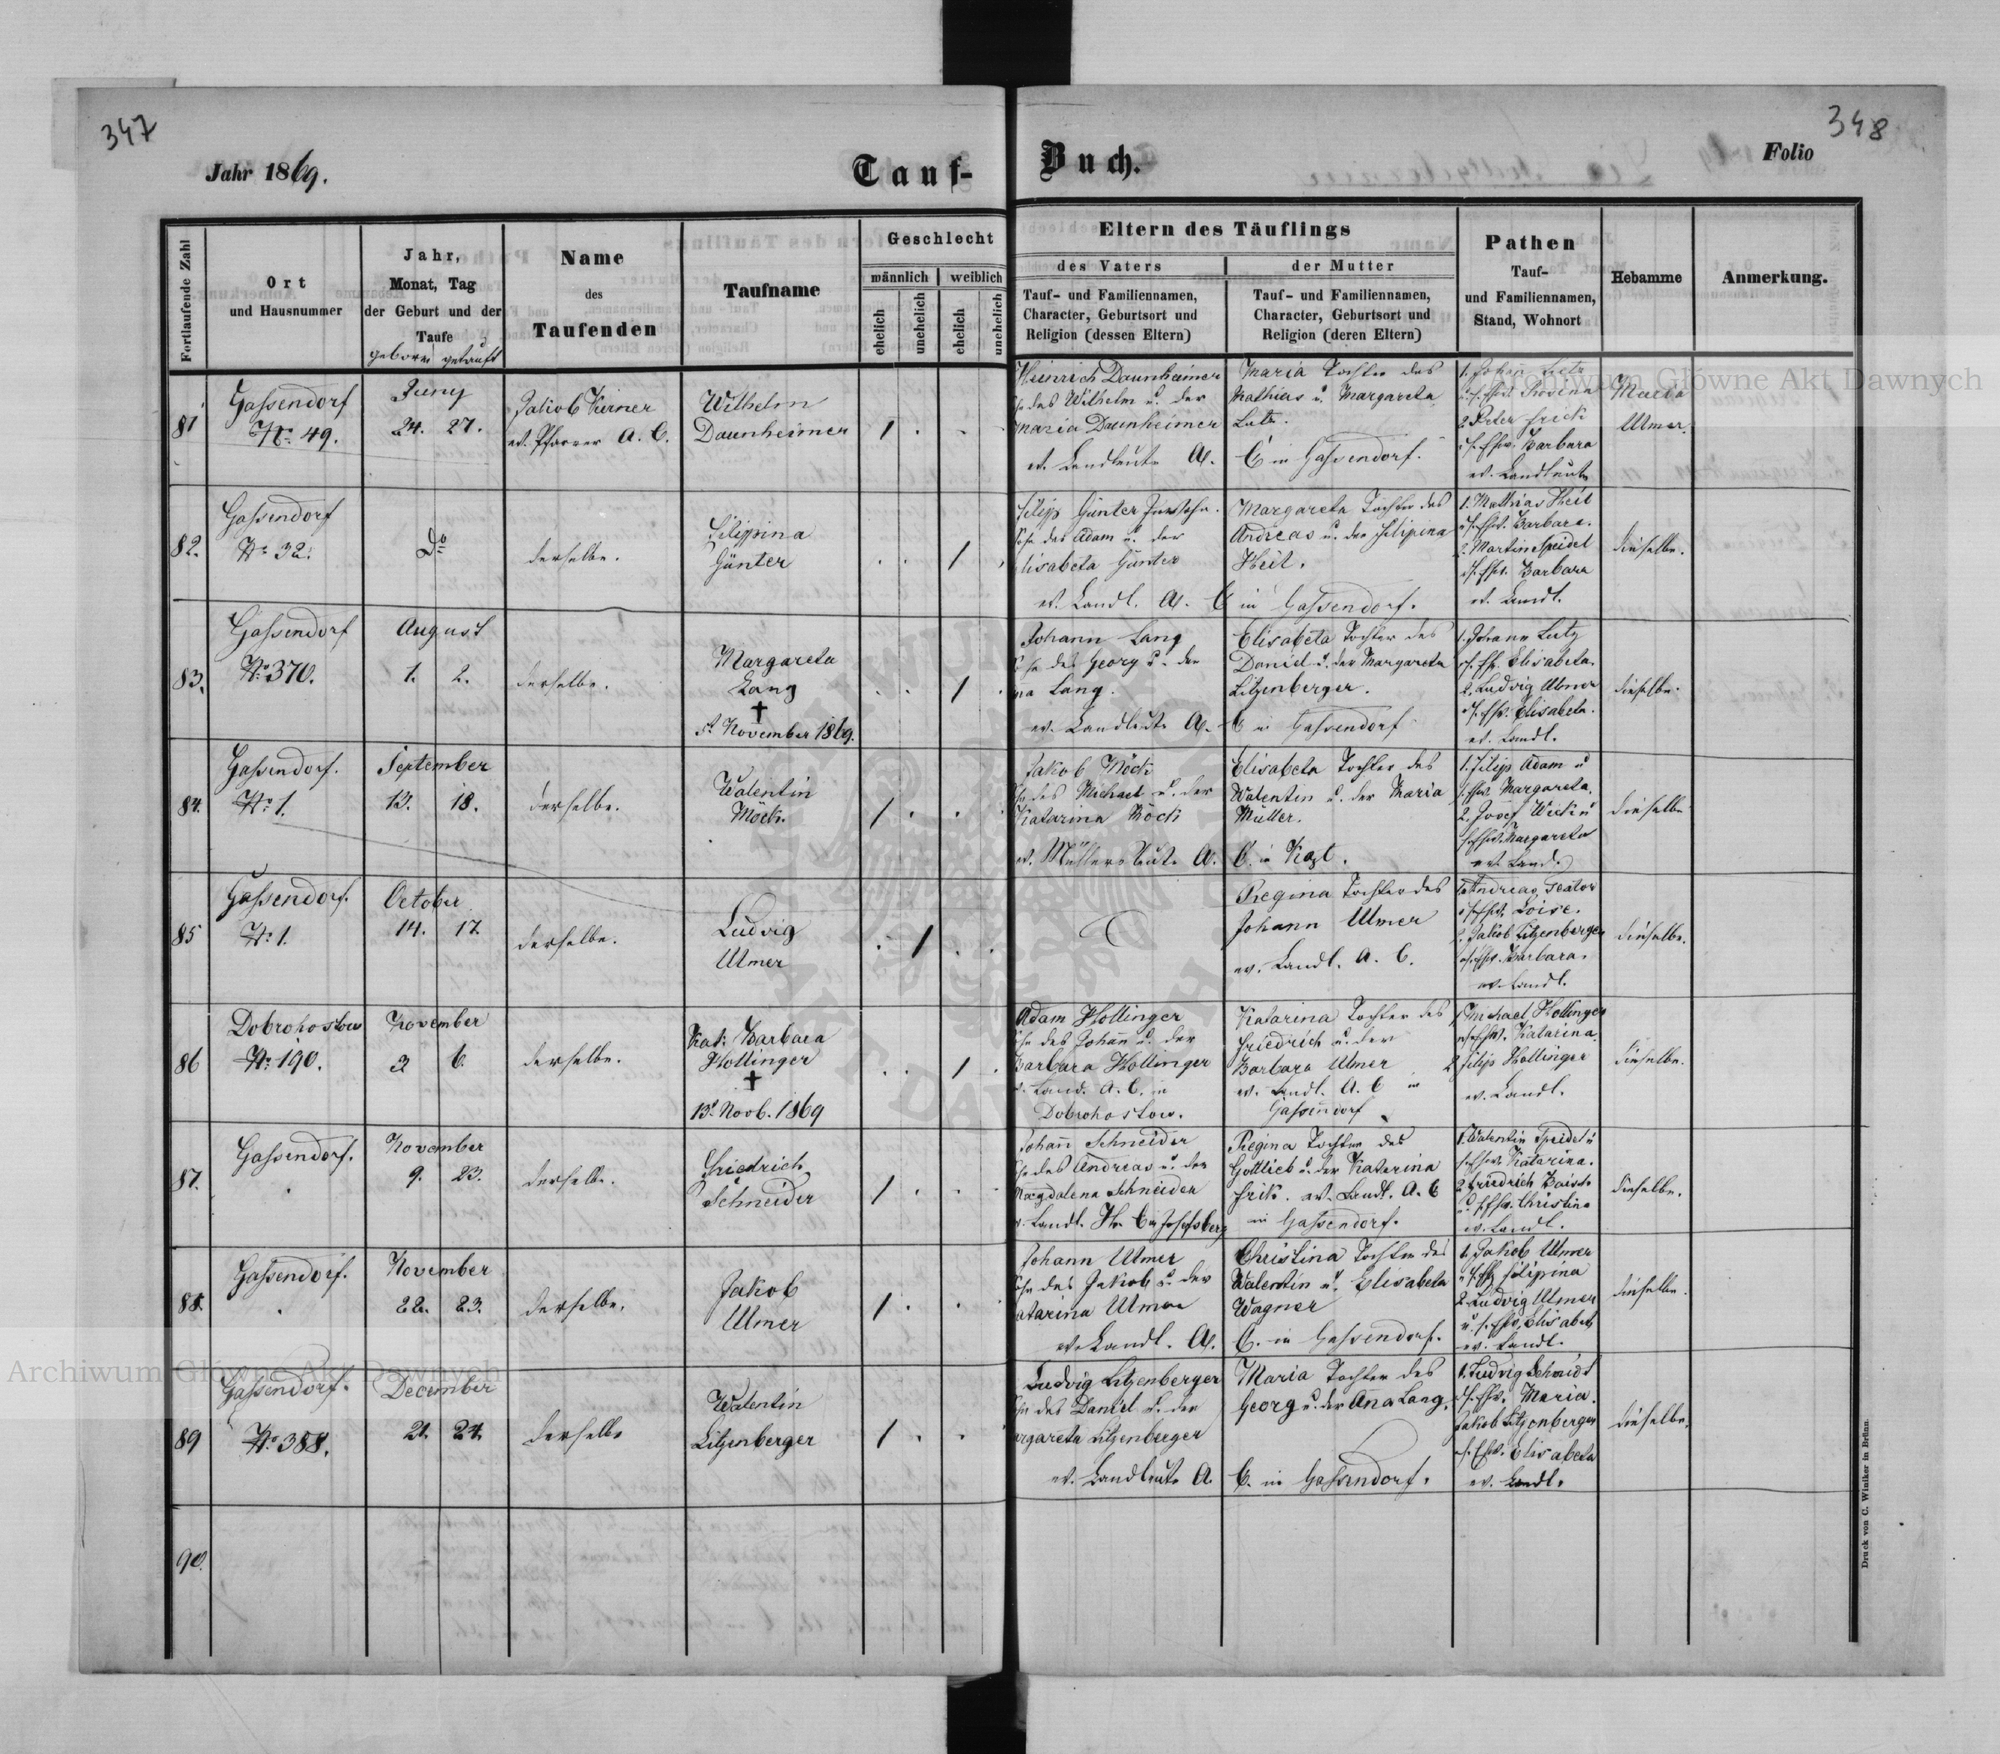 347
348
Jahr 1869.
Tauf-
Buch.
Folio
Fortlaufende Zahl
Ort
und Hausnummer
Jahr,
Monat, Tag
der Geburt und der
Taufe
geboren getauft
Name
des
Taufenden
Taufname
Geschlecht
männlich
weiblich
ehelich
unehelich
ehelich
unehelich
Eltern des Täuflings
des Vaters
Tauf- und Familiennamen,
Character, Geburtsort und
Religion (dessen Eltern)
der Mutter
Tauf- und Familiennamen,
Character, Geburtsort und
Religion (deren Eltern)
Pathen
Tauf-
und Familiennamen,
Stand, Wohnort
Hebamme
Anmerkung.
81
Gassendorf
No. 49.
Juny
24. 27.
Jakob Kerner
ev. Pfarrer A. C.
Wilhelm
Daunheimer
Heinrich Daunheimer
des Wilhelm u. der
Maria Daunheimer
ev. Landleute A.
Maria Tochter des
Mathias u. Margareta
Lutz.
C in Gassendorf.
1. Johann Lutz
2. Peter Frick
Barbara
ev. Landleute
Ulmer.
82.
Gassendorf
No. 32.
Do
derselbe.
Filippina
Günter
Filipp Günter
des Adam u. der
Elisabeta Günter
ev. Landl. A.
Margareta Tochter des
Andreas u. der Filipina
Heit.
C in Gassendorf.
1. Mathias Heit
Barbara.
2. Martin Speidel
Barbara
ev. Landl.
dieselbe.
83.
Gassendorf
No. 370.
August
1. 2.
derselbe.
Margareta
Lang
†
5t November 1869.
Johann Lang
des Georg u. der
Lang.
ev. Landleute A.
Elisabeta Tochter des
Daniel u. der Margareta
Litzenberger.
C in Gassendorf
1. Johann Lutz
Elisabeta.
2. Ludwig Ulmer
Elisabeta.
ev. Landl.
dieselbe.
84.
Gassendorf.
No. 1.
September
12. 18.
derselbe.
Walentin
Möck.
Jakob Möck
des Michael u. der
Katarina Möck
ev. Müllersleute A.
Elisabeta Tochter des
Walentin u. der Maria
Müller.
C. in
1. Filip Adam u
Margareta.
2. Josef
Margareta
ev. Landl.
dieselbe
85
Gassendorf.
No. 1.
October
14. 17.
derselbe.
Ludvig
Ulmer
Regina Tochter des
Johann Ulmer
ev. Landl. A. C.
Andreas
Loise.
2. Jakob Litzenberger
Barbara.
ev. Landl.
dieselbe.
86
Dobrohostow
No. 190.
November
3 6.
derselbe.
Kat. Barbara
Hollinger
†
13t Novb. 1869
Adam Hollinger
des Johann u. der
Barbara Hollinger
Landl. A. C. in
Dobrohostow.
Katarina Tochter des
Friedrich u. der
Barbara Ulmer
ev. Landl. A. C in
Gassendorf
Michael Hollinger
Katarina
2 Filip Hollinger
ev. Landl.
dieselbe.
87.
Gassendorf.
November
9. 23.
derselbe.
Friedrich
Schneider
Johann Schneider
des Andreas u. der
Magdalena Schneider
Landl. H. C in Josefsberg
Regina Tochter des
Gottlieb u. der Katarina
Frik. ev. Landl. A. C
in Gassendorf.
1. Walentin Speidel u
Katarina.
2. Friedrich
Christina
ev. Landl.
dieselbe.
88.
Gassendorf.
November
22. 23.
derselbe.
Jakob
Ulmer
Johann Ulmer
des Jakob u. der
Katarina Ulmer
ev. Landl. A.
Christina Tochter des
Walentin u. Elisabeta
Wagner
C. in Gassendorf.
1. Jakob Ulmer
Filipina
2. Ludvig Ulmer
Elisabeta
ev. Landl.
dieselbe.
89
Gassendorf.
No. 388.
December
21. 24.
derselbe
Walentin
Litzenberger
Ludvig Litzenberger
des Daniel u. der
Margareta Litzenberger
ev. Landleute A.
Maria Tochter des
Georg u. der Ana Lang.
C. in Gassendorf.
1. Ludvig Schmidt
Maria.
Jakob Litzenberger
Elisabeta
ev. Landl.
dieselbe.
90.
Druck von C. Winiker in Brünn.
Archiwum Główne Akt Dawnych
Archiwum Główne Akt Dawnych